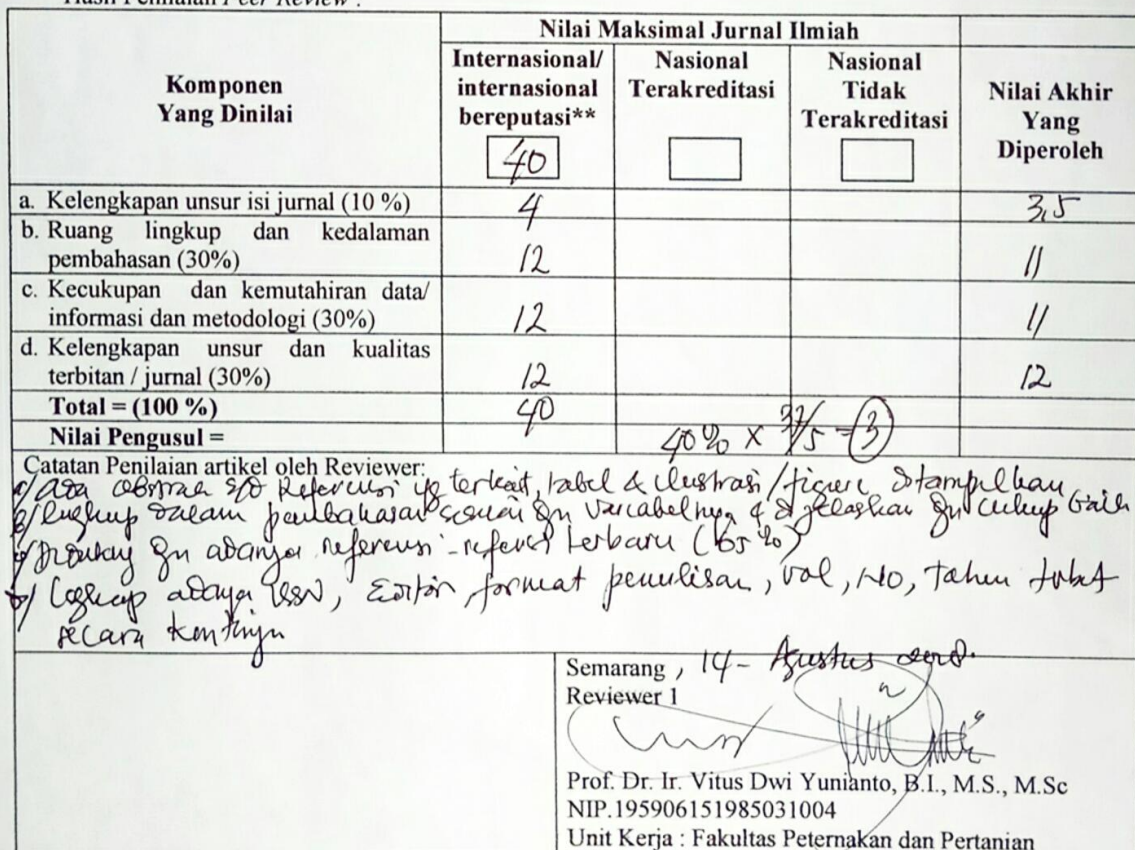 Hasil Penilaian Peer Review :
Nilai Maksimal Jurnal Ilmiah
Komponen
Yang Dinilai
Internasional/
internasional
bereputasi**
40
Nasional
Terakreditasi
Nasional
Tidak
Terakreditasi
Nilai Akhir
Yang
Diperoleh
a. Kelengkapan unsur isi jurnal (10 %) 4 3,5
b. Ruang lingkup dan kedalaman
pembahasan (30%) 12 11
c. Kecukupan dan kemutahiran data/
informasi dan metodologi (30%) 12 11
d. Kelengkapan unsur dan kualitas
terbitan / jurnal (30%) 12 12
Total = (100 %) 40
Nilai Pengusul = 40% x /5 = 3
Catatan Penilaian artikel oleh Reviewer:
a/ ada s/d Referensi yg terkait, tabel & ilustrasi / figure ditampilkan
dalam pembahasan sesuai dn variabelnya & dijelaskan dn cukup baik
dn adanya referensi-referensi terbaru (65%)
adanya ISSN, Editor, format penulisan, vol, No, tahun terbit
secara kontinyu
Semarang , 14 - Agustus
Reviewer 1
Prof. Dr. Ir. Vitus Dwi Yunianto, B.I., M.S., M.Sc
NIP.195906151985031004
Unit Kerja : Fakultas Peternakan dan Pertanian